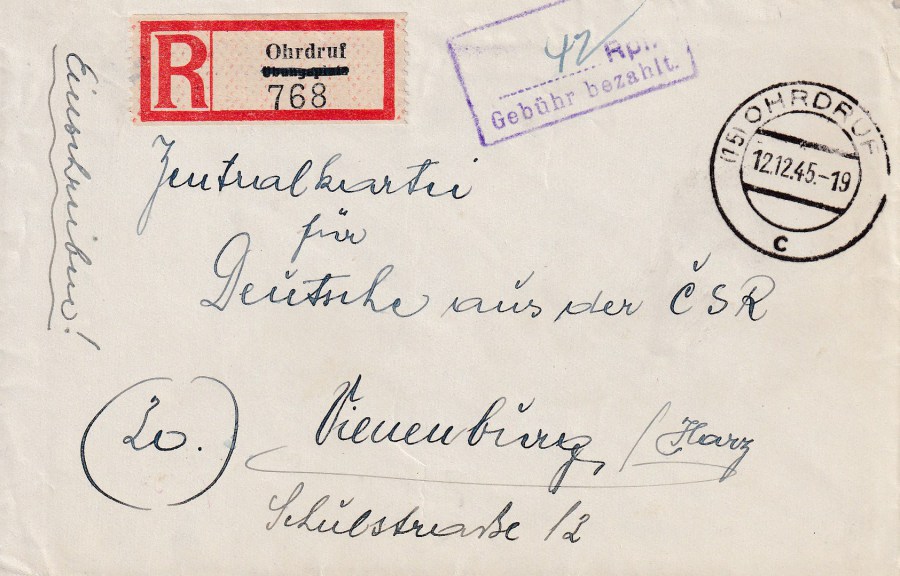 Einschreiben!
R
Ohrdruf
Übungsplatz
768
42 Rpf.
Gebühr bezahlt.
(15) OHRDRUF
12.12.45.-19
c
Zentralkartei
für
Deutsche aus der ČSR
20.
Vienenburg / Harz
Schulstraße 12